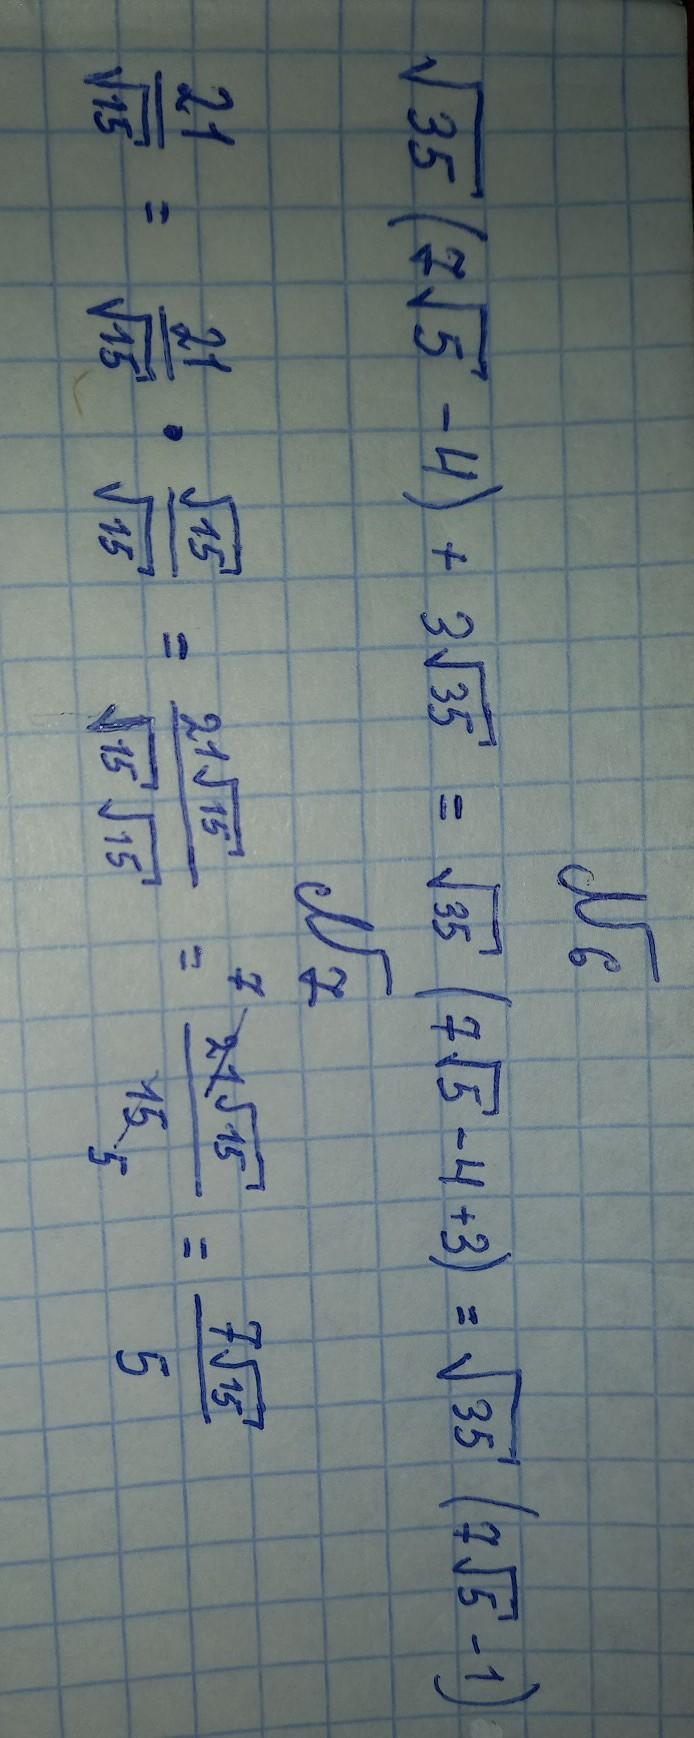 №6
√35 (7√5 - 4) + 3√35 = √35 (7√5 - 4 + 3) = √35 (7√5 - 1)
№7
21/√15 = 21/√15 • √15/√15 = 21√15/√15 √15 = 7 21√15/15 5 = 7√15/5